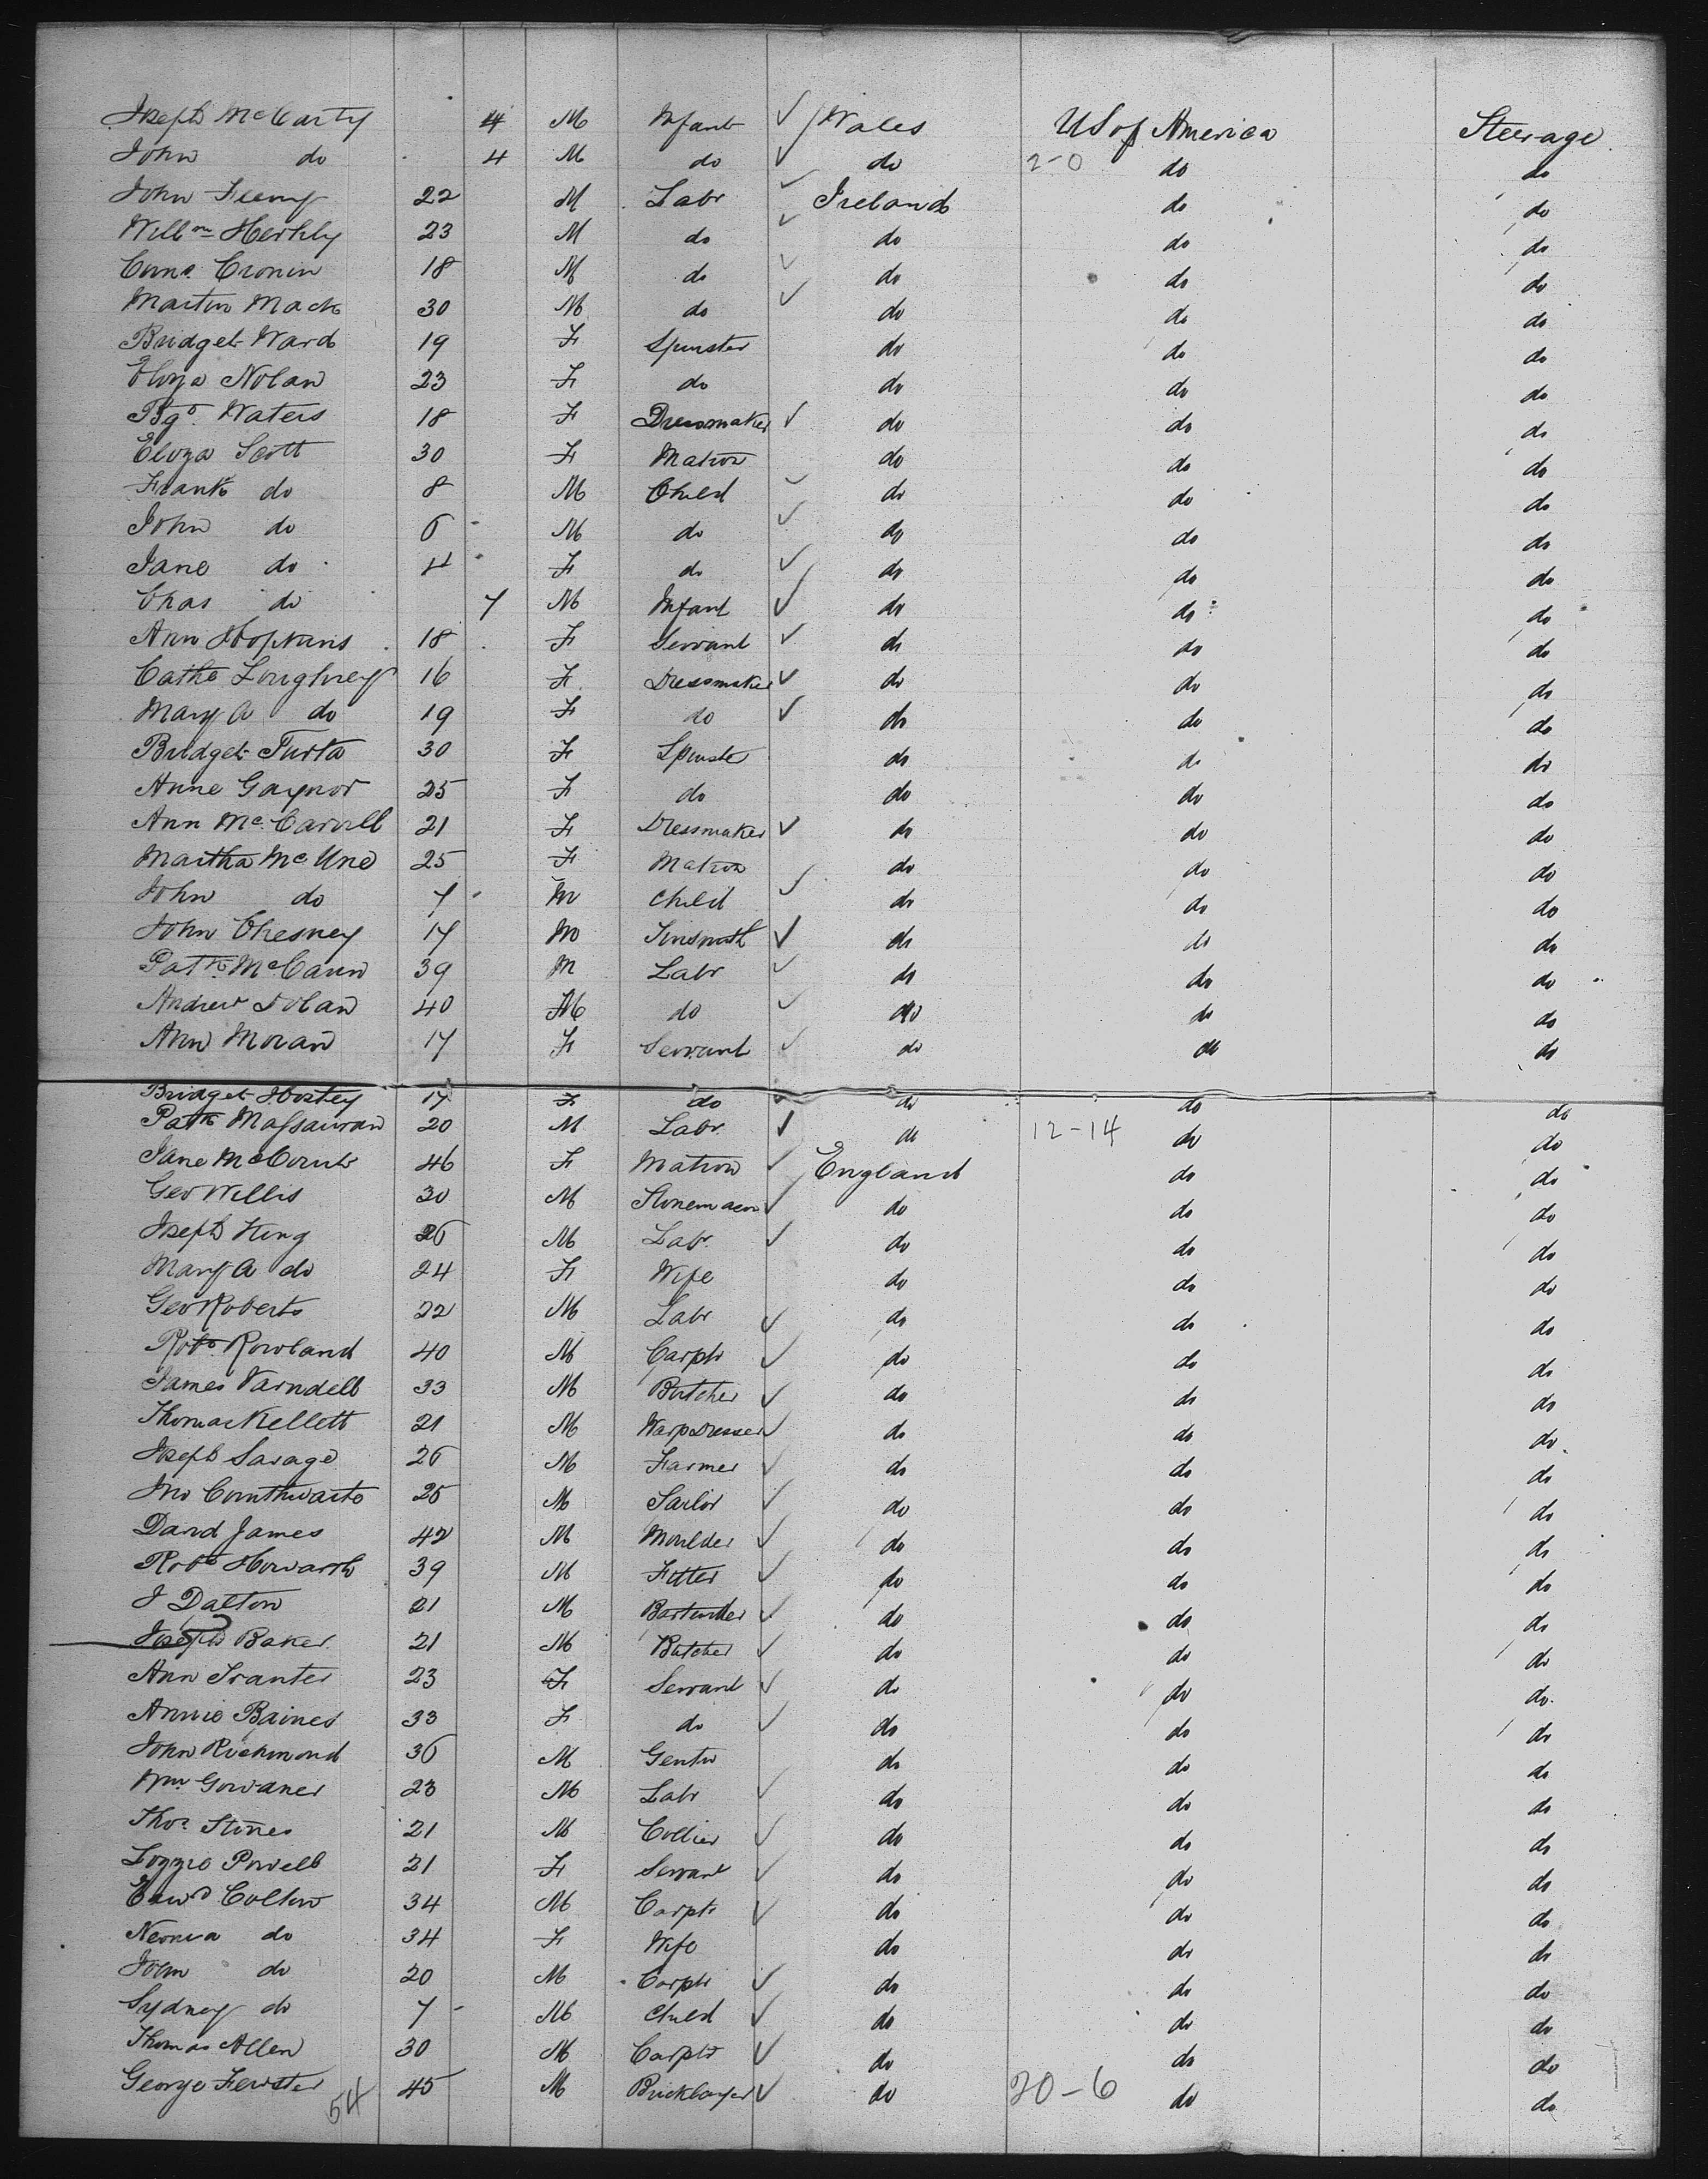 Joseph McCarty 4 M Infant ✓ Wales US of America Steerage
John do 4 M do ✓ do 2-0 do do
John Fleemy 22 M Labr ✓ Ireland do do
Willm Herhly 23 M do ✓ do do do
Corns. Cronin 18 M do ✓ do do do
Martin Mack 30 M do ✓ do do do
Bridget Ward 19 F Spinster do do do
Eliza Nolan 23 F do do do do
Bgt. Waters 18 F Dressmaker ✓ do do do
Eliza Scott 30 F Matron do do do
Frank do 8 M Child ✓ do do do
John do 6 M do ✓ do do do
Jane do 4 F do ✓ do do do
Chas do 7 M Infant ✓ do do do
Ann Hopkins 18 F Servant ✓ do do do
Cathe Loughrey 16 F Dressmaker ✓ do do do
Mary A do 19 F do ✓ do do do
Bridget Turta 30 F Spinster do do do
Anne Gaynor 25 F do do do do
Ann Mc Carvill 21 F Dressmaker ✓ do do do
Martha Mc Une 25 F Matron do do do
John do 7 M Child ✓ do do do
John Chesney 17 M Tinsmith ✓ do do do
Patk. McCann 39 M Labr ✓ do do do
Andrew Dolan 40 M do ✓ do do do
Ann Moran 17 F Servant ✓ do do do
Bridget Hostey 17 F do ✓ do do do
Patk Massauran 20 M Labr. ✓ do 12-14 do do
Jane McComb 46 F Matron ✓ England do do
Geo Willis 30 M Stonemason ✓ do do do
Joseph King 26 M Labr. ✓ do do do
Mary A do 24 F Wife do do do
Geo Roberts 22 M Labr ✓ do do do
Robt. Rowland 40 M Carptr ✓ do do do
James Varndell 33 M Butcher ✓ do do do
Thomas Kellett 21 M Warp Dresser ✓ do do do
Joseph Savage 26 M Farmer ✓ do do do
Jno Cornthwaite 25 M Sailor ✓ do do do
David James 42 M Moulder ✓ do do do
Robt Howarth 39 M Fitter ✓ do do do
J Dalton 21 M Bartender ✓ do do do
Joseph Baker 21 M Butcher ✓ do do do
Ann Tranter 23 F Servant ✓ do do do
Annie Baines 33 F do ✓ do do do
John Richmond 36 M Gentn do do do
Wm. Gowaner 23 M Labr ✓ do do do
Thos. Stones 21 M Collier ✓ do do do
Lizzie Powell 21 F Servant ✓ do do do
Edwd Colton 34 M Carptr ✓ do do do
do 34 F Wife do do do
John do 20 M Carptr ✓ do do do
Sydney do 7 M Child ✓ do do do
Thomas Allen 30 M Carptr ✓ do do do
George Fewster 45 M Bricklayer ✓ do 20-6 do do
54